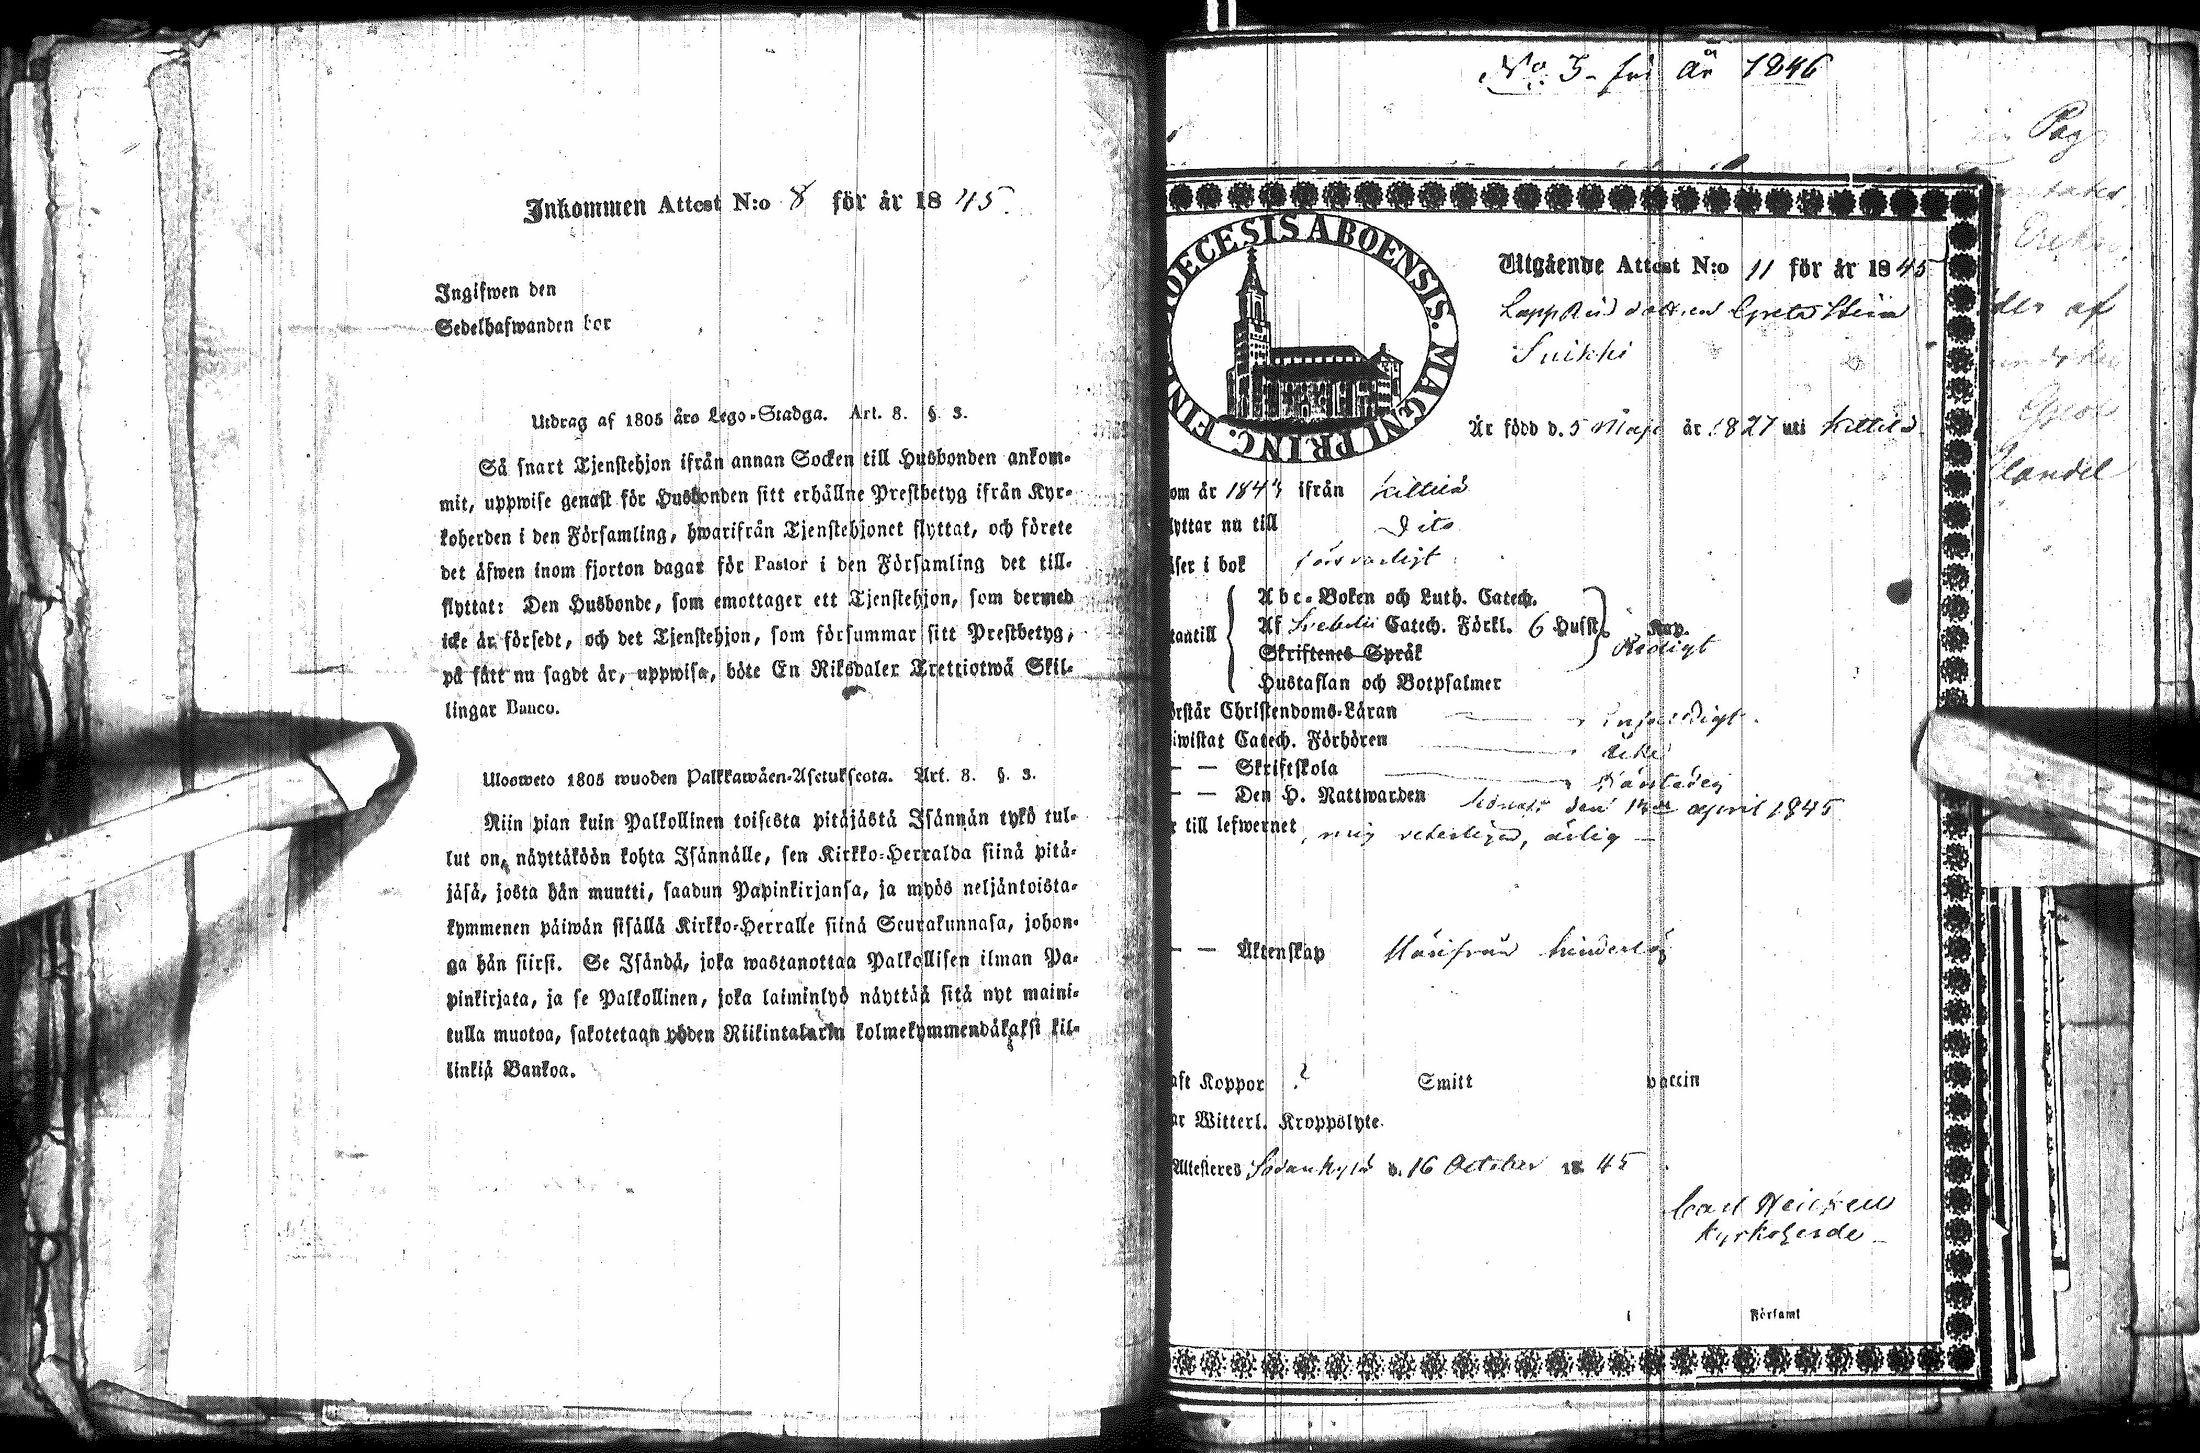 Inkommen Attest N:o 8 för år 1845.
Ingifwen den
Sedelhafwanden bor
Utdrag af 1805 års Lego-Stadga. Art. 8. §. 3.
Så snart Tjenstehjon ifrån annan Socken till Husbonden ankom-
mit, uppwise genast för Husbonden sitt erhållne Prestbetyg ifrån Kyr-
koherden i den Församling, hwarifrån Tjenstehjonet flyttat, och förete
det äfwen inom fjorton dagar för Pastor i den Församling det till-
flyttat: Den Husbonde, som emottager ett Tjenstehjon, som dermed
icke är försedt, och det Tjenstehjon, som försummar sitt Prestbetyg,
på sätt nu sagdt är, uppwisa, böte En Riksdaler Trettiotwå Skil-
lingar Banco.
Ulosweto 1805 wuoden Palkkawäen-Asetuksesta. Art. 8. §. 3.
Niin pian kuin Palkollinen toisesta pitäjästä Isännän tykö tul-
lut on, näyttäköön kohta Isännälle, sen Kirkko-Herralda siinä pitä-
jäsä, josta hän muutti, saadun Papinkirjansa, ja myös neljäntoista-
kymmenen päiwän sisällä Kirkko-Herralle siinä Seurakunnasa, johon-
ga hän siirsi. Se Isändä, joka wastanottaa Palkollisen ilman Pa-
pinkirjata, ja se Palkollinen, joka laiminlyö näyttää sitä nyt maini-
tulla muotoa, sakotetaan yhden Riikintalarin kolmekymmendäkaksi kil-
linkiä Bankoa.
No 5 för år 1846
DIOECESIS ABOENSIS. MAGNI PRINC. FIN
Utgående Attest N:o 11 för år 1845
Greta Stina
Suikki
Är född d. 5 Maji år 1827 uti Kittilä
om år 184 ifrån Kittilä
lyttar nu till Dito
äser i bok försvarligt
Abc-Boken och Luth. Catech.
tantill Af Svebelii Catech. Förkl. 6 Husst. Kap.
Skriftenes Språk
Hustaflan och Botpsalmer
örstår Christendoms-Läran enfaldigt.
iwistat Catech. Förhören
— — Skriftskola
— — Den H. Nattwarden den april 1845
r till lefwernet, ärlig —
— — Äktenskap Härifrån hinderlös
aft Koppor ? Smitt vaccin
ar Witterl. Kroppslyte
Attesteres Sodankylä d. 16 October 1845
Carl
Kyrkoherde
Församl
Pag
der af